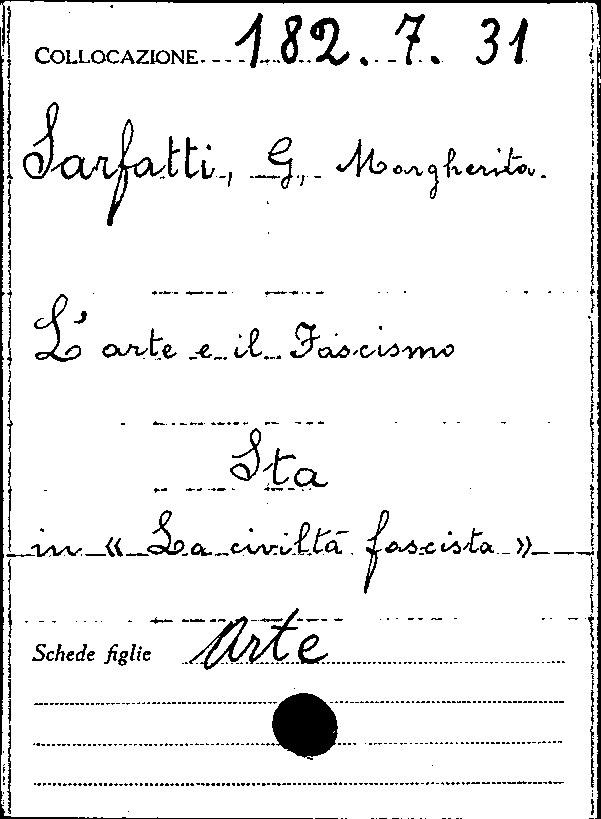 COLLOCAZIONE 182.7.31
Sarfatti, G, Margherita.
L'arte e il Fascismo
Sta
in « La civiltà fascista »
Schede figlie Arte